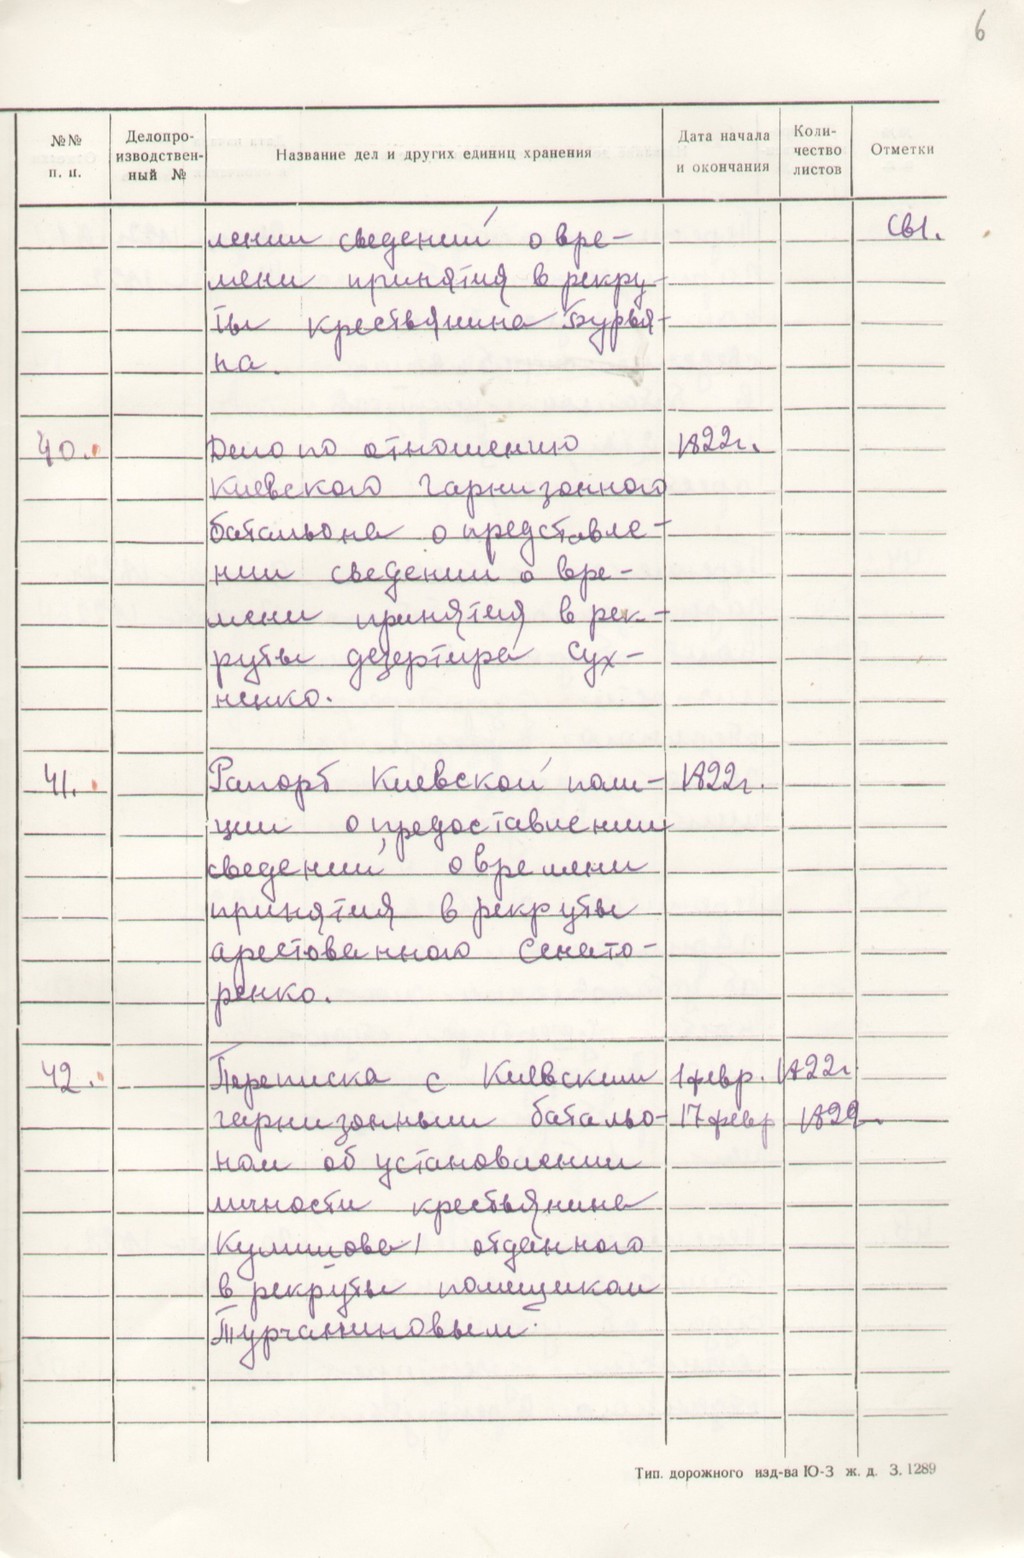 6
№№ п. п. Делопроизводствен- ный № Название дел и других единиц хранения Дата начала и окончания Коли- чество листов Отметки
лении сведений о вре- св1.
мени принятия в рекру-
ты крестьянина Бурья-
на.
40. Дело по отношению 1822г.
Киевского гарнизонного
батальона о представле-
нии сведении о вре-
мени принятия в рек-
руты дезертира Сух-
ненко.
41. Рапорт Киевской поли- 1822г.
ции о предоставлении
сведений о времени
принятия в рекруты
арестованного Сенато-
ренко.
42. Переписка с Киевским 1 февр. 1822г
гарнизонным батальо- 17 февр 1822.
ном об установлении
личности крестьянина
отданного
в рекруты помещиком
Турчаниновым.
Тип. дорожного изд-ва Ю-З ж. д. З. 1289